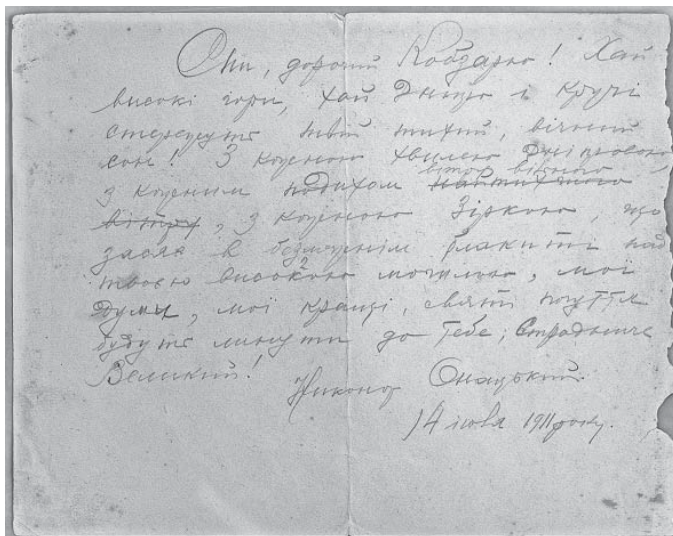 Спи, дорогий Кобзарю! Хай
високі гори, хай Дніпро і Кручі
стережуть твій тихий, вічний
сон! З кожною хвилею Дніпровою,
з кожним подихом найтихшого
вітру, з кожною Зіркою, що
засяя в безмежнім блакиті над
твоєю високою могилою, мої
думи, мої кращі, святі почуття
будуть линути до Тебе, Страдниче
Великий!
Никанор Онацький.
14 1911 року.